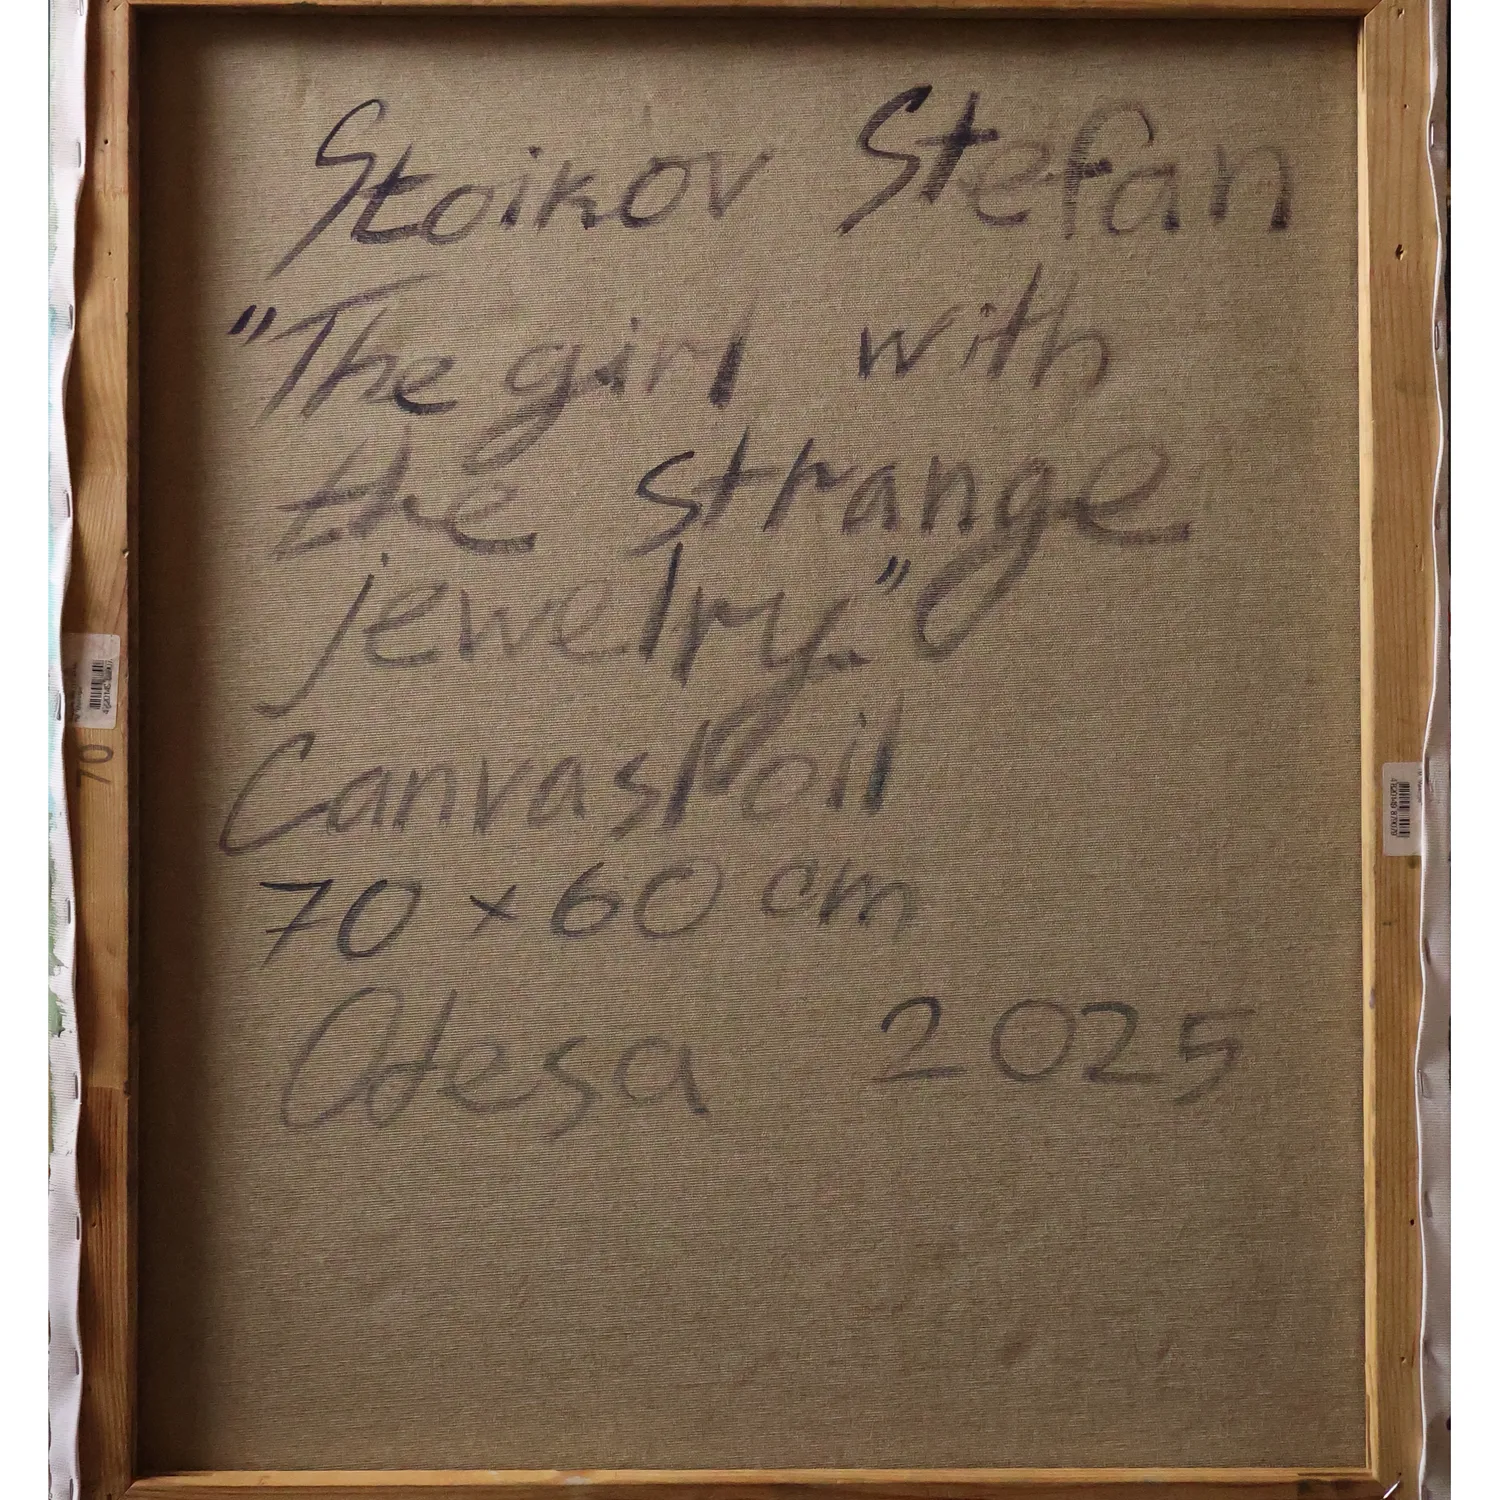 Stoikov Stefan
"The girl with
the strange
jewelry."
Canvas\oil
70 x 60 cm
Odesa 2025
70